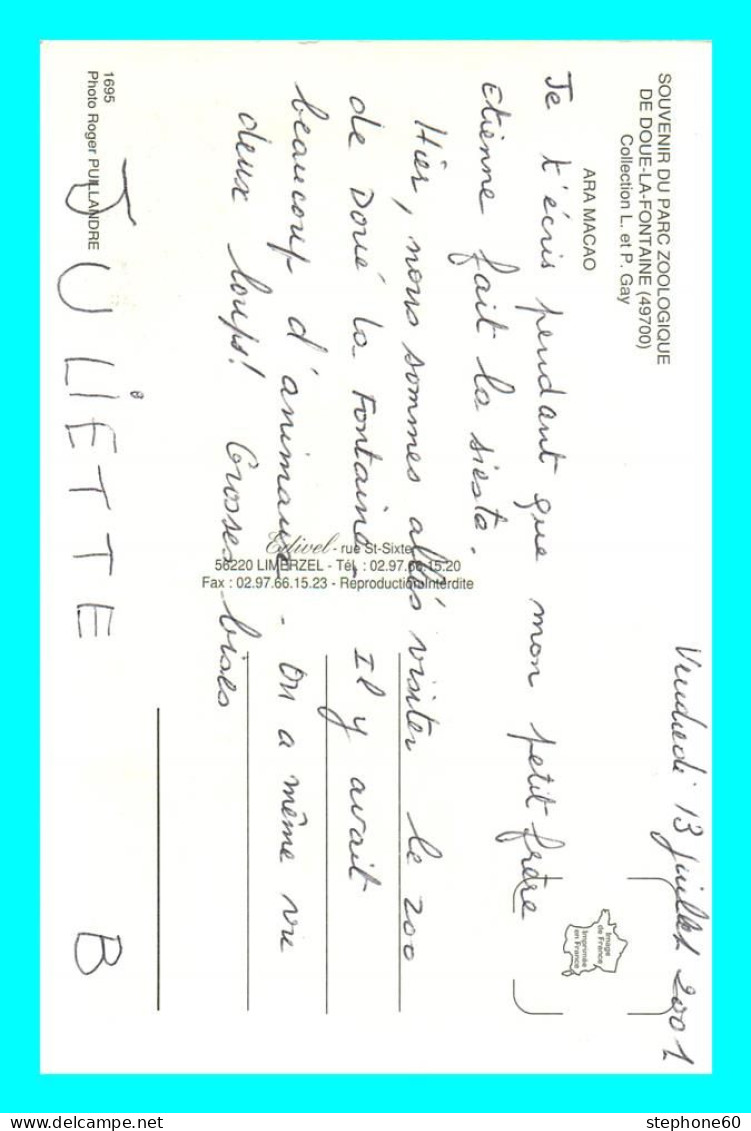 SOUVENIR DU PARC ZOOLOGIQUE
DE DOUE-LA-FONTAINE (49700)
Collection L. et P. Gay
ARA MACAO
Vendredi 13 juillet 2001
Je t'écris pendant que mon petit frère
Etienne fait la sieste.
Hier, nous sommes allés visiter le zoo
de Doué la Fontaine. Il y avait
beaucoup d'animaux. On a même vu
deux loups! Grosses bises
JULIETTE B
1695
Photo Roger PUILLANDRE
Edivel - rue St-Sixte
56220 LIMERZEL - Tél : 02.97.66.15.20
Fax : 02.97.66.15.23 - Reproduction Interdite
Image
de France
Imprimée
en France
stephone60